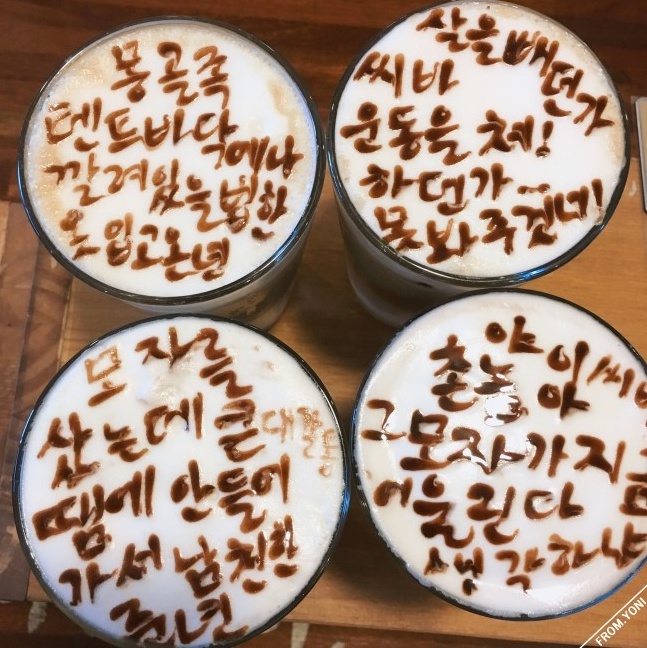 몽골족
텐트바닥에나
깔려있을법한
옷입고온년
살을빼던가
씨바
운동을 쳐!
하던가...
못봐주겠네!
모자를
샀는데 큰대갈통
땜에 안들어
가서 남친한
준년
야 이씨
촌놈아
그모자가 지금
어울린다
생각하냐
FROM.YONI